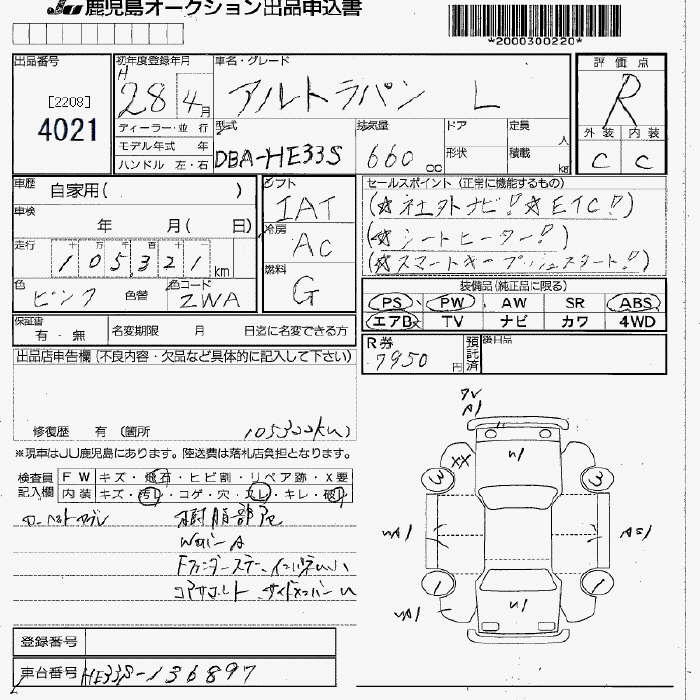 JU鹿児島オークション出品申込書
*2000300220*
出品番号
[2208]
4021
初年度登録年月
H 28 4月
ディーラー・並 行
モデル年式 年
ハンドル 左・右
車名・グレード
アルトラパン L
型式
DBA-HE33S
排気量
660 cc
ドア
形状
定員 人
積載 kg
評価点
R
外装 内装
C C
車歴 自家用( )
車検 年 月( 日)
走行 十 万 千 百 十
105,321 km
色 ピンク 色替
色コード ZWA
シフト
IAT
冷房
AC
燃料
G
セールスポイント (正常に機能するもの)
(☆社外ナビ!☆ETC!)
(☆シートヒーター!)
(☆スマートキープッシュスタート!)
装備品(純正品に限る)
PS PW AW SR ABS
エアB TV ナビ カワ 4WD
保証書
有・無
名変期限 月 日迄に名変できる方
R券
7950 円
預託済
後日品
出品店申告欄(不良内容・欠品など具体的に記入して下さい)
修復歴 有 (箇所 105300km)
※現車はJU鹿児島にあります。陸送費は落札店負担となります。
検査員記入欄
FW キズ・飛石・ヒビ割・リペア跡・X要
内装 キズ・汚れ・コゲ・穴・スレ・キレ・破れ
樹脂部
A1
U1
3 3
A1
1 1
U1
登録番号
車台番号 HE33S-136897